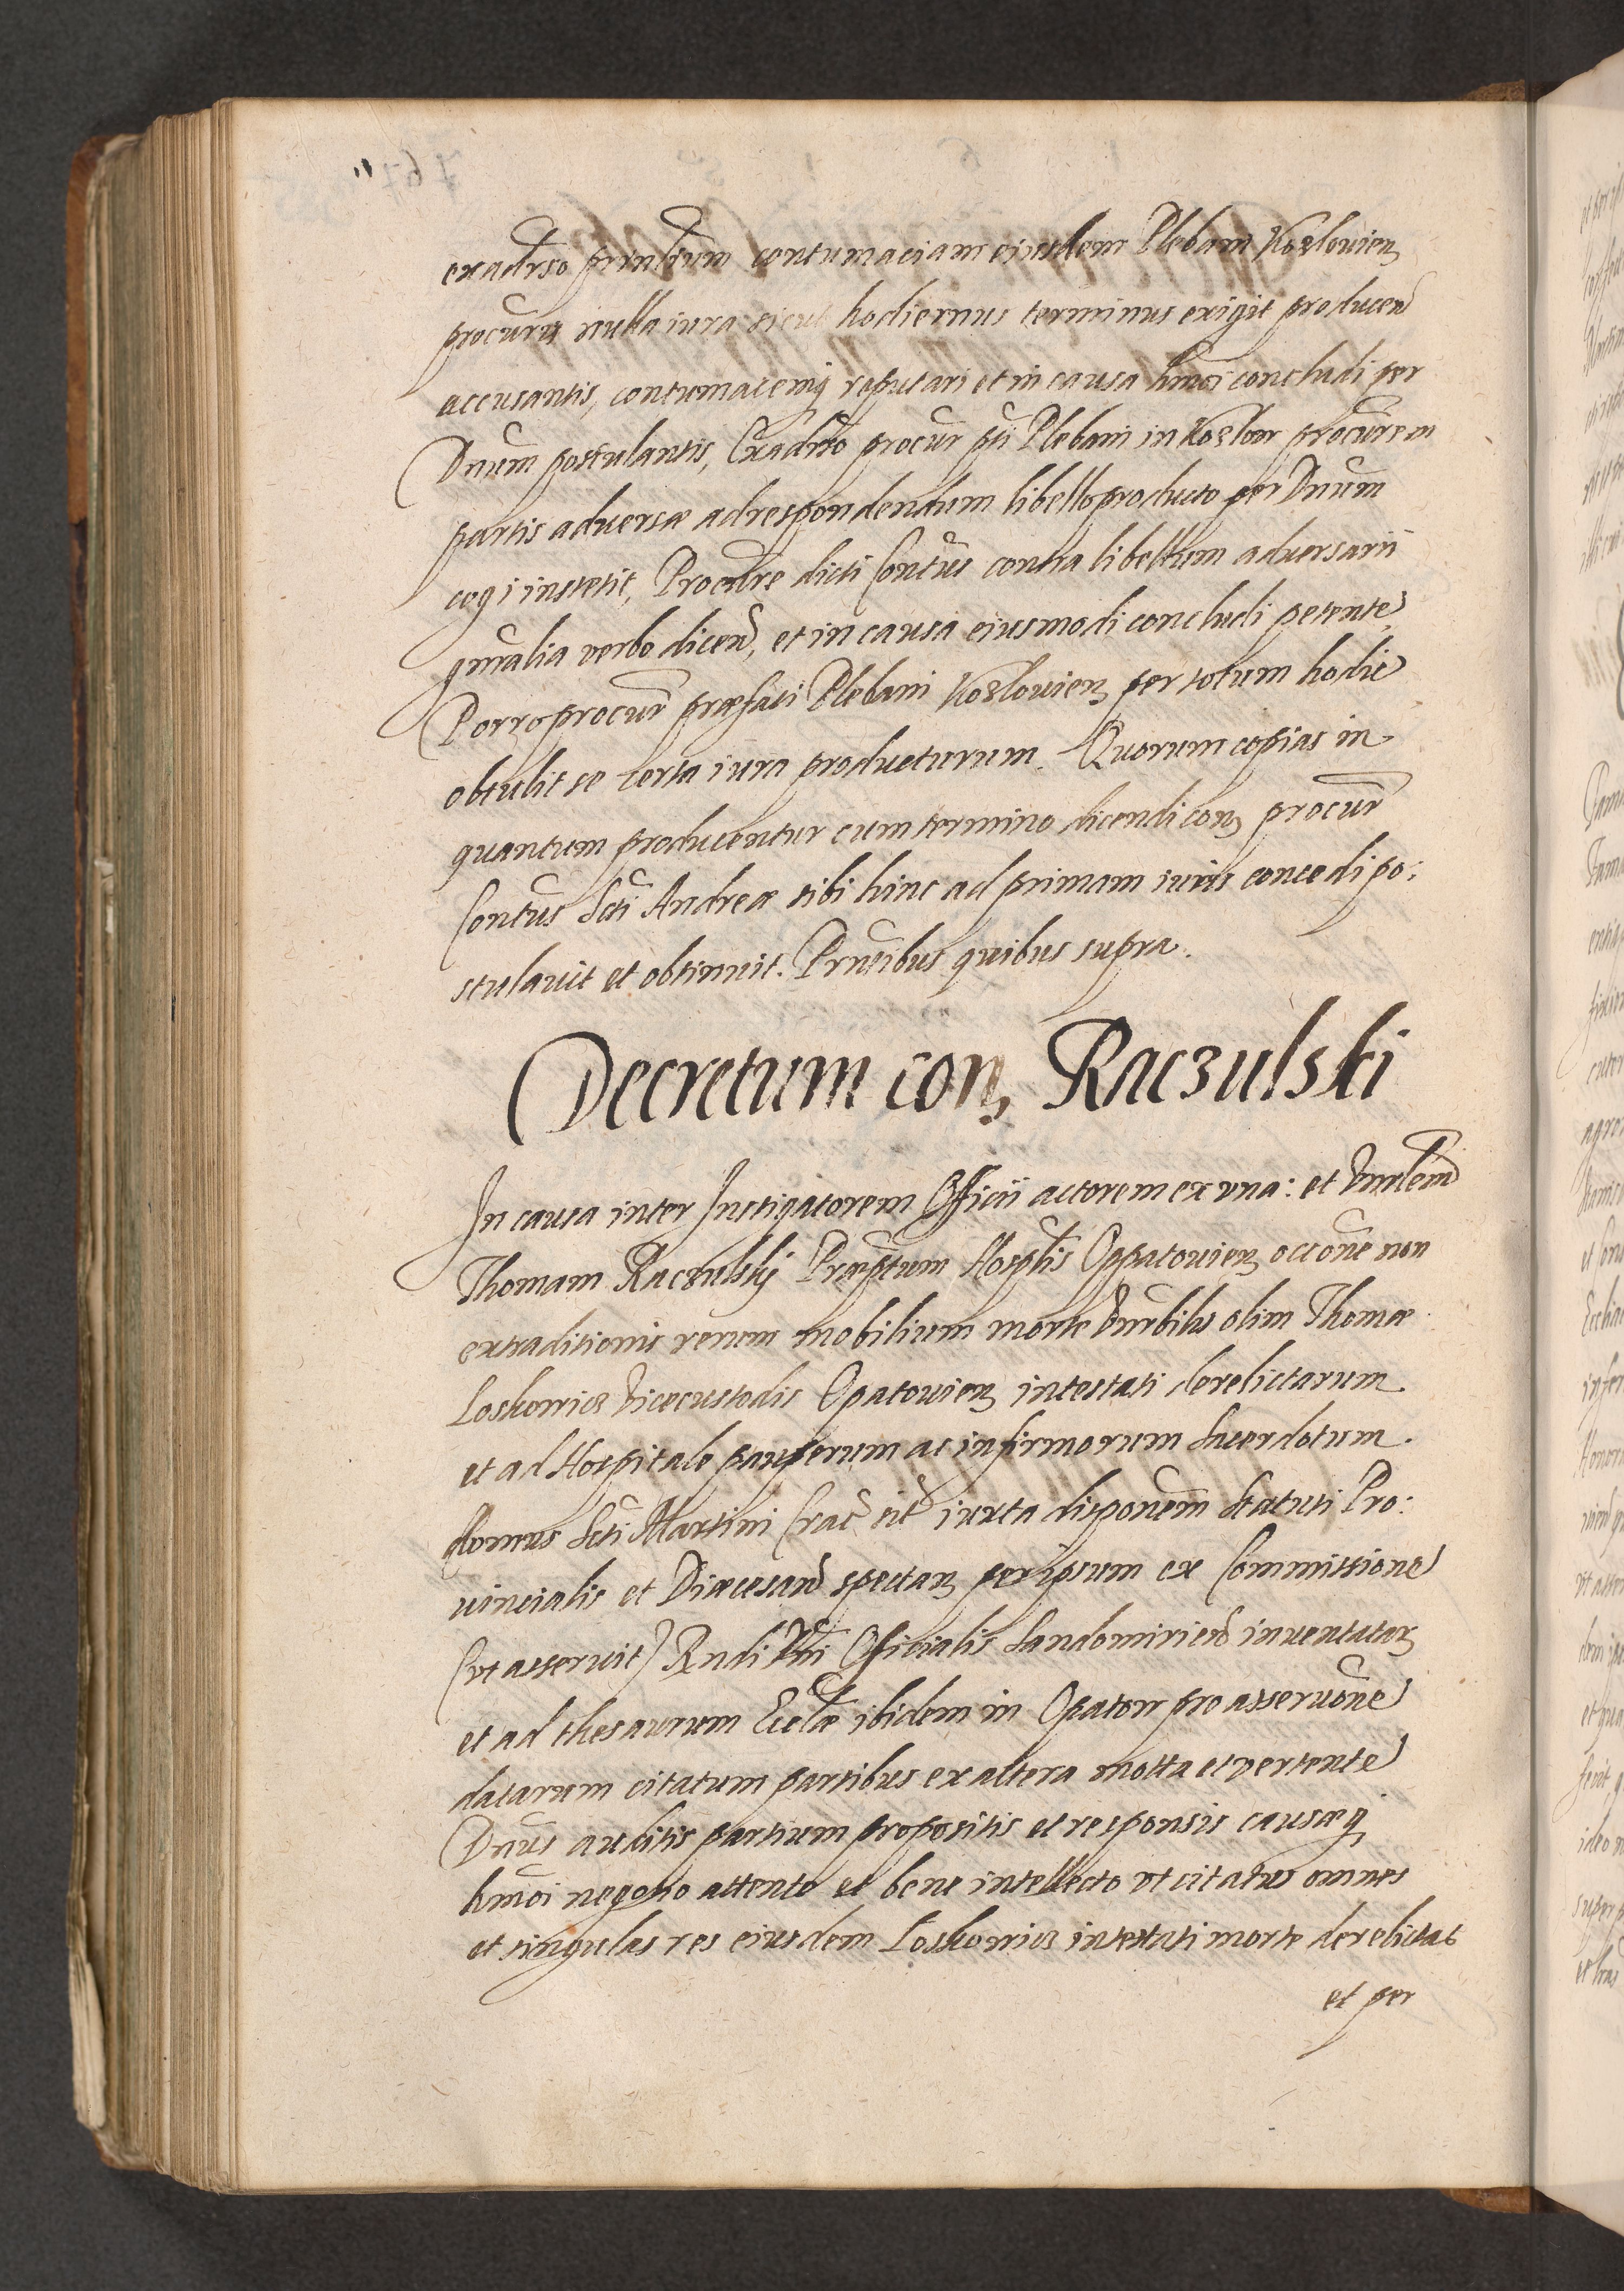 exadrso prinlium contumaciam eiusdem Plebani Kozlouien
procura nulla iura sicut hodiernus terminus exigit producen
accusantis, contumacemq reputari et in causa hmoi concludi per
Dnum postulantis, Exadrso procur pti Plebani in Kozlow procurem
partis aduersæ ad respondendum libello producto per Dnum
cogi institit, Procure dicti Contus contra libellum aduersarii
gnralia verbo dicen, et in causa eiusmodi concludi petente
Porro procur præfati Plebani Kozlouien per totum hodie
obtulit se certa iura producturum. Quorum copias in
quantum producentur cum termino dicendi con procur
Contus Scti Andreæ sibi hinc ad primam iuris concedi po:
stulauit et obtinuit. Prntibus quibus supra.
Decretum con Raczulski
In causa inter Instigatorem Officii actorem ex vna: et Vnrlem
Thomam Raczulskij Præptum Hosplis Oppatouien occone non
extraditionis rerum mobilium morte Vnrbilis olim Thomæ
Loskowicz Vicecustodis Opatouien intestati derelictarum
et ad Hospitale pauperum ac infirmorum Sacerdotum
domus Scti Martini Crac sit iuxta disponem Statuti Pro:
uincialis et Diæcesan spectan per ipsum ex Commissione
(vt asseruit) Rndi Dni Officialis Sandomirien inuentatar
et ad thesaurum Ecclæ ibidem in Opatow pro asseruone
datarum citatum partibus ex altera motta et vertente
Dnus auditis partium propositis et responsis causæq
hmoi negotio attento et bene intellecto vt citatus omnes
et singulas res eiusdem Loskowicz intestati morte derelictas
et per